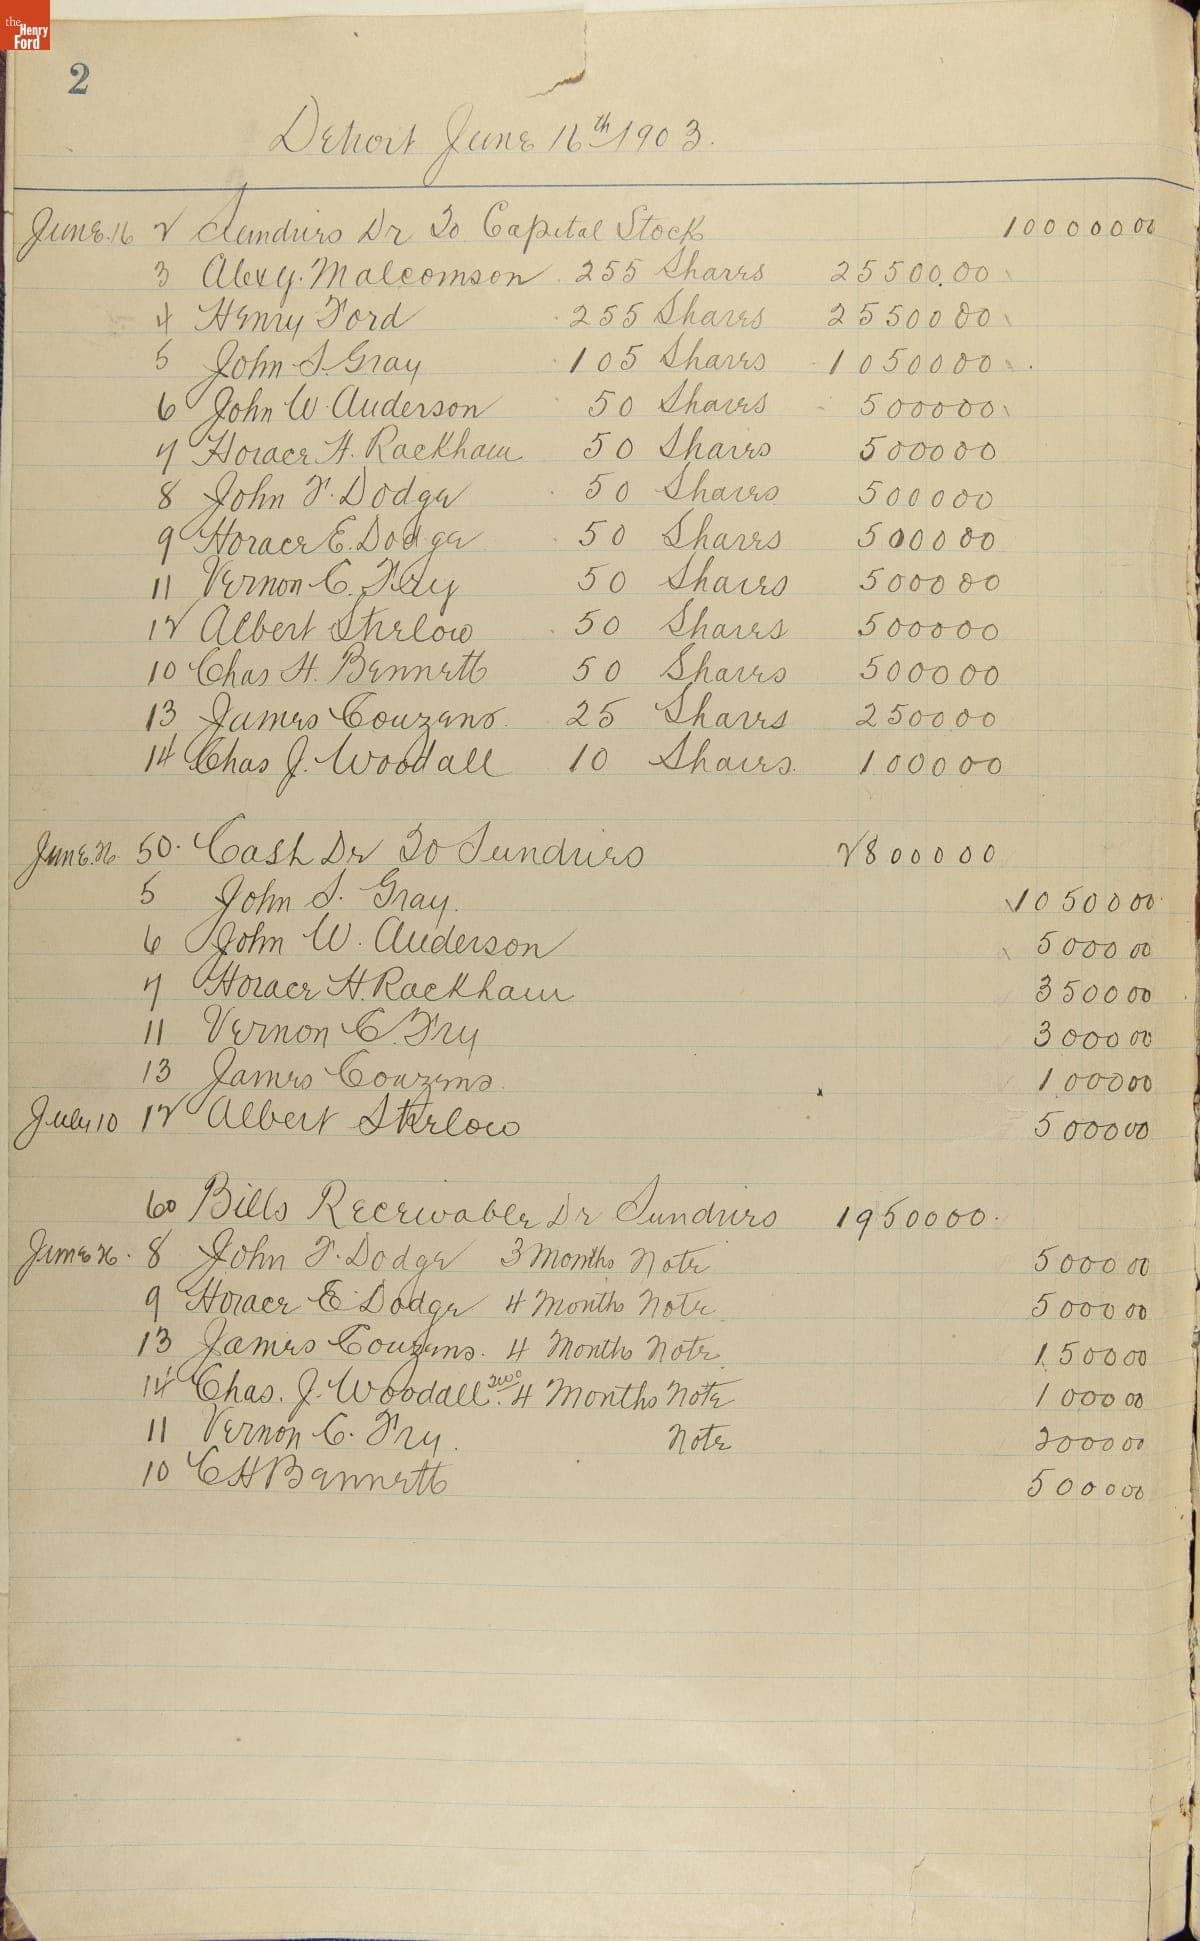 the Henry Ford
2
Detroit June 16th 1903.
June. 16 2 Sundries Dr To Capital Stock 10000000
3 Alex y. Malcomson 255 Shares 25500.00
4 Henry Ford 255 Shares 2550000
5 John S. Gray 105 Shares 1050000
6 John W. Anderson 50 Shares 500000
7 Horace H. Rackham 50 Shares 500000
8 John F. Dodge 50 Shares 500000
9 Horace E. Dodge 50 Shares 500000
11 Vernon C. Fry 50 Shares 500000
12 Albert Strelow 50 Shares 500000
10 Chas H. Bennett 50 Shares 500000
13 James Couzens. 25 Shares 250000
14 Chas J. Woodall 10 Shares. 100000
June. 26. 50. Cash Dr To Sundries 2800000
5 John S. Gray. 1050000
6 John W. Anderson 500000
7 Horace H. Rackham 350000
11 Vernon C. Fry 300000
13 James Couzens. 100000
July 10 12 Albert Strelow 500000
60 Bills Receivable Dr Sundries 1950000.
June 26. 8 John F. Dodge 3 Months Note 500000
9 Horace E. Dodge 4 Months Note 500000
13 James Couzens. 4 Months Note 150000
14 Chas. J. Woodall. two 4 Months Note 100000
11 Vernon C. Fry. Note 200000
10 C H Bennett 500000